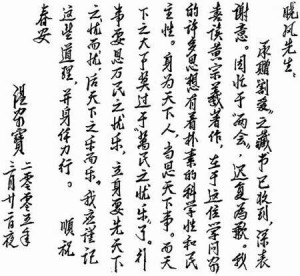 晓风先生:
承赠割爱之藏书已收到,深表
谢意。因忙于“两会”,迟复为歉。我
喜读黄宗羲著作,在于这位学问家
的许多思想有着朴素的科学性和民
主性。身为天下人,当思天下事。而天
下之大事莫过于“万民之忧乐”了。行
事要思万民之忧乐,立身要先天下
之忧而忧,后天下之乐而乐。我应谨记
这些道理,并身体力行。 顺祝
春安
温家宝
二〇〇五年
三月廿一日夜